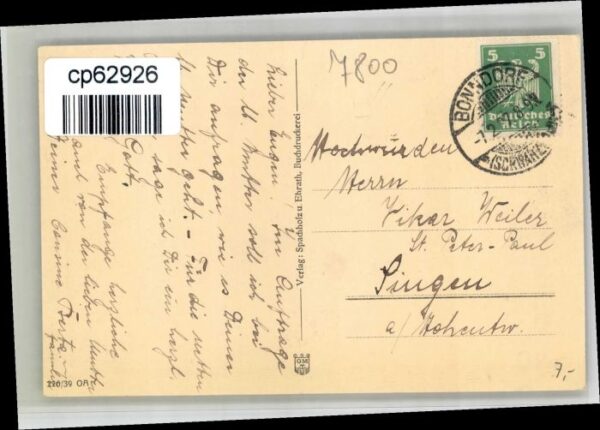 cp62926
7800
5 5
Deutsches
Reich
BONNDORF
(SCHWARZW
Hochwürden
Herrn
Vikar Weiler
St. Peter-Paul
Singen
a/Hohentw.
7,-
Verlag: Spachholz u. Ehrath, Buchdruckerei
Lieber Eugen! Im Auftrage
der lb Mutter soll ich bei
Dir anfragen wie es Deiner
lb Mutter geht. - Für die netten
sage ich Dir ein herzl.
Gott.
Empfange herzliche
von der lieben Mutter
Deiner Cousine Berta
226/39